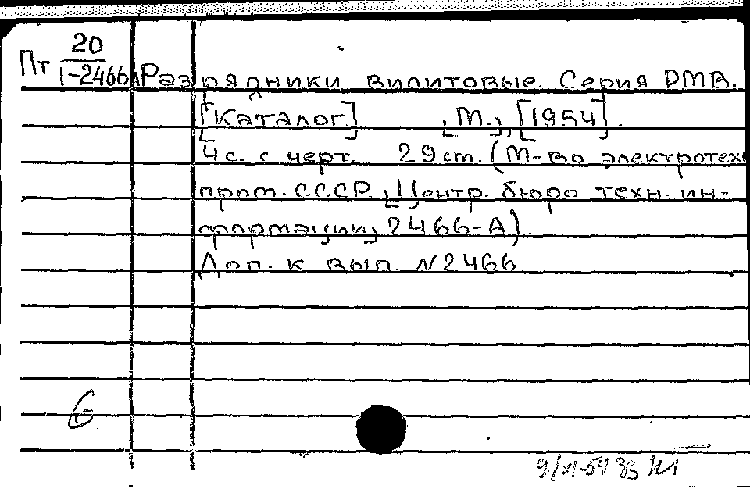 Пт 20/1-2466А Разрядники вилитовые. Серия РМВ.
[Каталог]. [М.], [1954].
4 с. с черт. 29 ст. (М-во электротех
пром. СССР. Центр. бюро техн. ин-
формации, 2466-А)
Доп. к вып. №2466
6